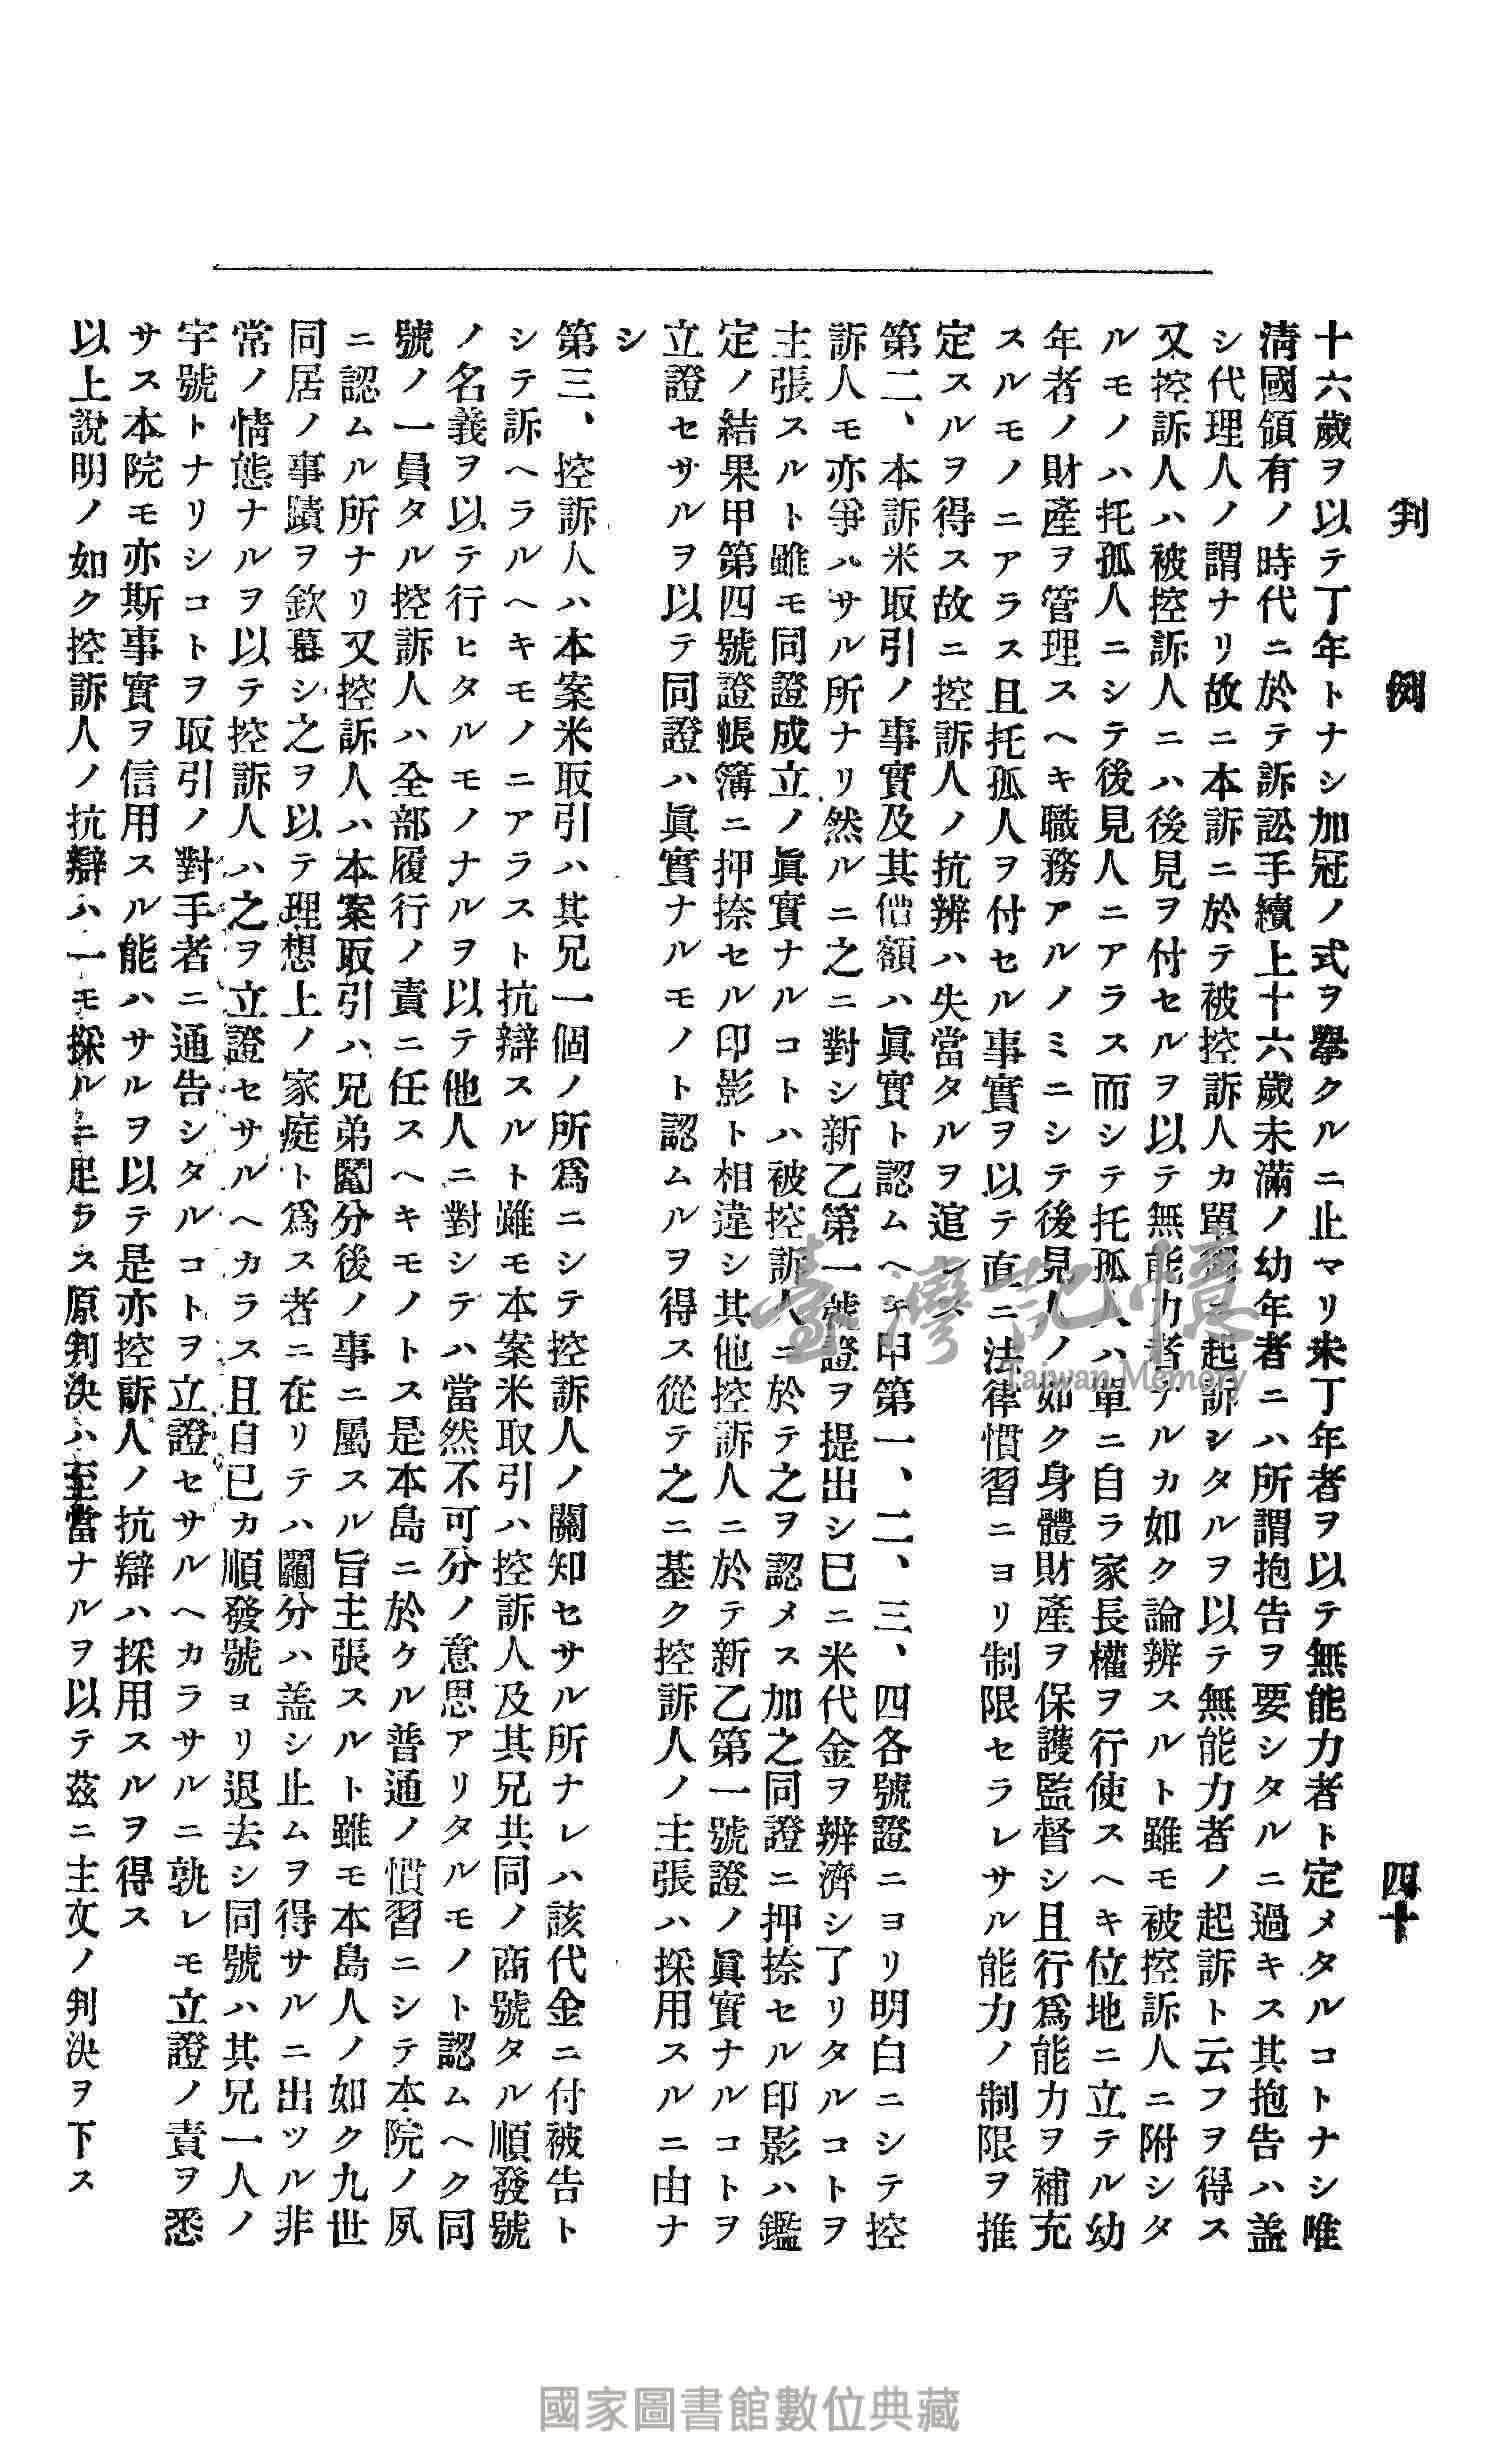 判例
四十
十六歲ヲ以テ丁年トナシ加冠ノ式ヲ擧クルニ止マリ未丁年者ヲ以テ無能力者ト定メタルコトナシ唯
淸國領有ノ時代ニ於テ訴訟手續上十六歲未滿ノ幼年者ニハ所謂抱告ヲ要シタルニ過キス其抱告ハ盖
シ代理人ノ謂ナリ故ニ本訴ニ於テ被控訴人カ單獨ニ起訴シタルヲ以テ無能力者ノ起訴ト云フヲ得ス
又控訴人ハ被控訴人ニハ後見ヲ付セルヲ以テ無能力者ナルカ如ク論辨スルト雖モ被控訴人ニ附シタ
ルモノハ托孤人ニシテ後見人ニアラス而シテ托孤人ハ單ニ自ラ家長權ヲ行使スヘキ位地ニ立テル幼
年者ノ財產ヲ管理スヘキ職務アルノミニシテ後見人ノ如ク身體財產ヲ保護監督シ且行爲能力ヲ補充
スルモノニアラス且托孤人ヲ付セル事實ヲ以テ直ニ法律慣習ニヨリ制限セラレサル能力ノ制限ヲ推
定スルヲ得ス故ニ控訴人ノ抗辨ハ失當タルヲ逭レス
第二、本訴米取引ノ事實及其價額ハ眞實ト認ムヘキ甲第一、二、三、四各號證ニヨリ明白ニシテ控
訴人モ亦爭ハサル所ナリ然ルニ之ニ對シ新乙第一號證ヲ提出シ巳ニ米代金ヲ辨濟シ了リタルコトヲ
主張スルト雖モ同證成立ノ眞實ナルコトハ被控訴人ニ於テ之ヲ認メス加之同證ニ押捺セル印影ハ鑑
定ノ結果甲第四號證帳簿ニ押捺セル印影ト相違シ其他控訴人ニ於テ新乙第一號證ノ眞實ナルコトヲ
立證セサルヲ以テ同證ハ眞實ナルモノト認ムルヲ得ス從テ之ニ基ク控訴人ノ主張ハ採用スルニ由ナ
シ
第三、控訴人ハ本案米取引ハ其兄一個ノ所爲ニシテ控訴人ノ關知セサル所ナレハ該代金ニ付被告ト
シテ訴ヘラルヘキモノニアラスト抗辯スルト雖モ本案米取引ハ控訴人及其兄共同ノ商號タル順發號
ノ名義ヲ以テ行ヒタルモノナルヲ以テ他人ニ對シテハ當然不可分ノ意思アリタルモノト認ムヘク同
號ノ一員タル控訴人ハ全部履行ノ責ニ任スヘキモノトス是本島ニ於ケル普通ノ慣習ニシテ本院ノ夙
ニ認ムル所ナリ又控訴人ハ本案取引ハ兄弟鬮分後ノ事ニ屬スル旨主張スルト雖モ本島人ノ如ク九世
同居ノ事蹟ヲ欽慕シ之ヲ以テ理想上ノ家庭ト爲ス者ニ在リテハ鬮分ハ盖シ止ムヲ得サルニ出ツル非
常ノ情態ナルヲ以テ控訴人ハ之ヲ立證セサルヘカラス且自已カ順發號ヨリ退去シ同號ハ其兄一人ノ
字號トナリシコトヲ取引ノ對手者ニ通告シタルコトヲ立證セサルヘカラサルニ孰レモ立證ノ責ヲ悉
サス本院モ亦斯事實ヲ信用スル能ハサルヲ以テ是亦控訴人ノ抗辯ハ採用スルヲ得ス
以上說明ノ如ク控訴人ノ抗辯ハ一モ採ルニ足ラス原判決ハ至當ナルヲ以テ茲ニ主文ノ判決ヲ下ス
臺灣記憶
Taiwan Memory
國家圖書館數位典藏